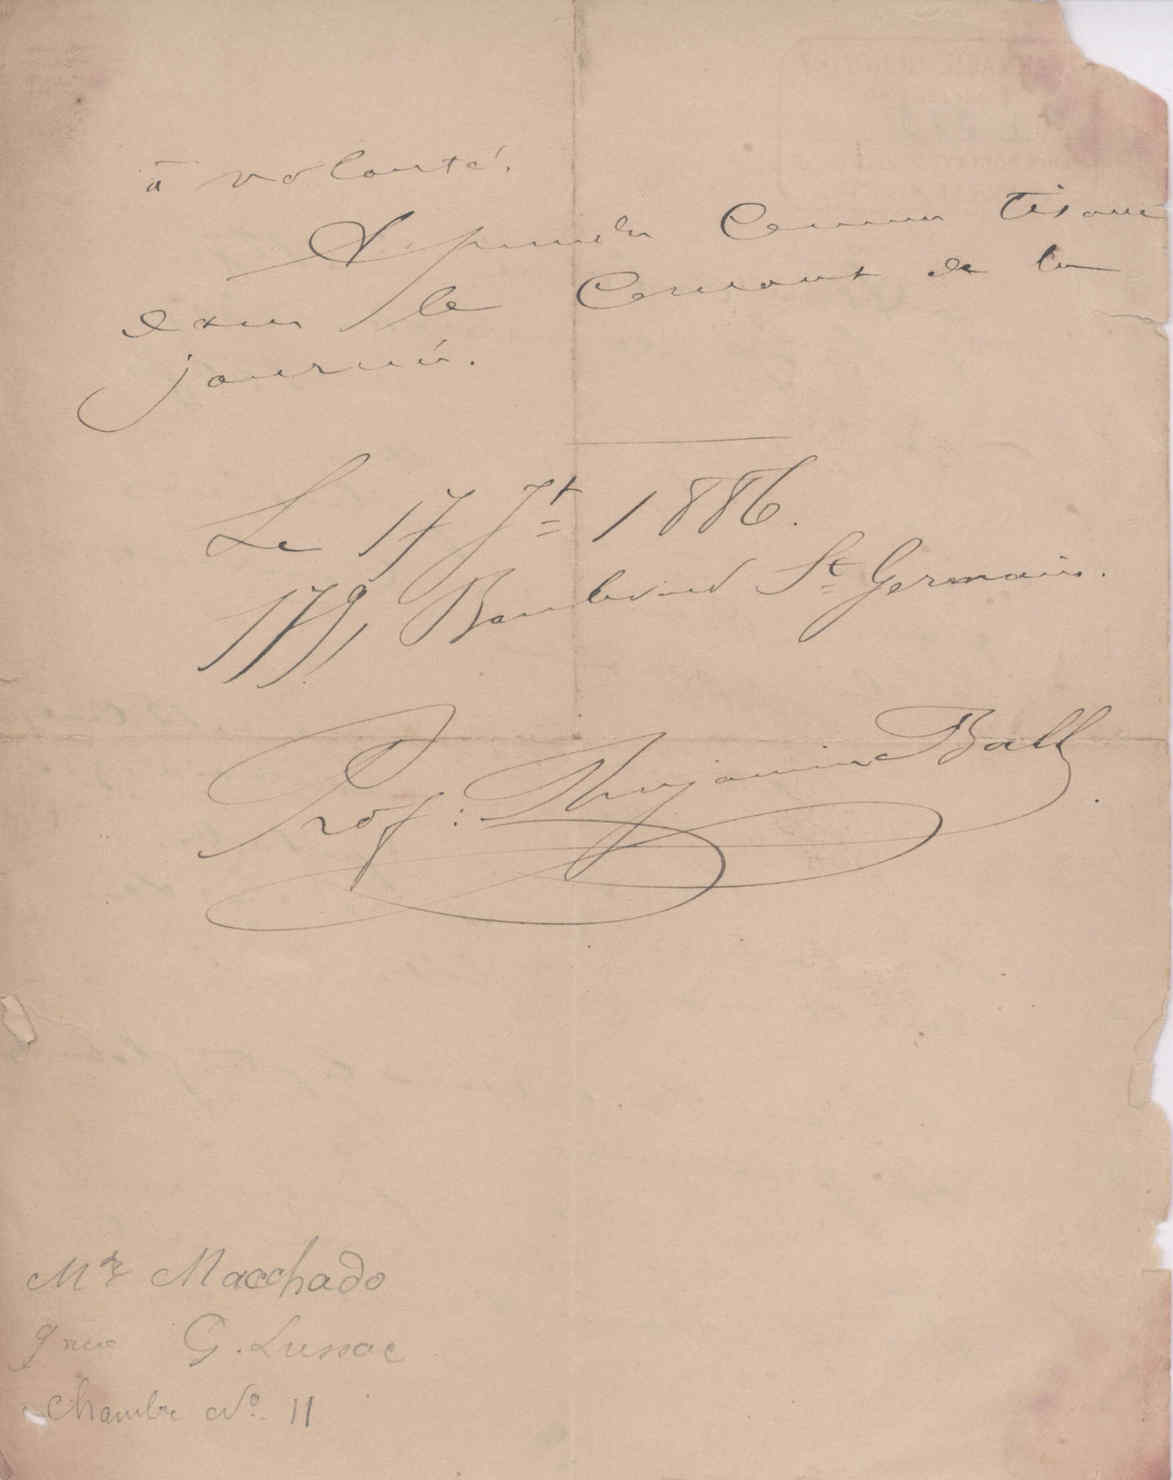 à volonté.
A prendre comme tisane
dans le courant de la
journée.
Le 17 Jt 1886.
179, Boulevard St Germain.
Prof: Benjamin Ball
Mr Macchado
9 rue G. Lussac
Chambre No. 11